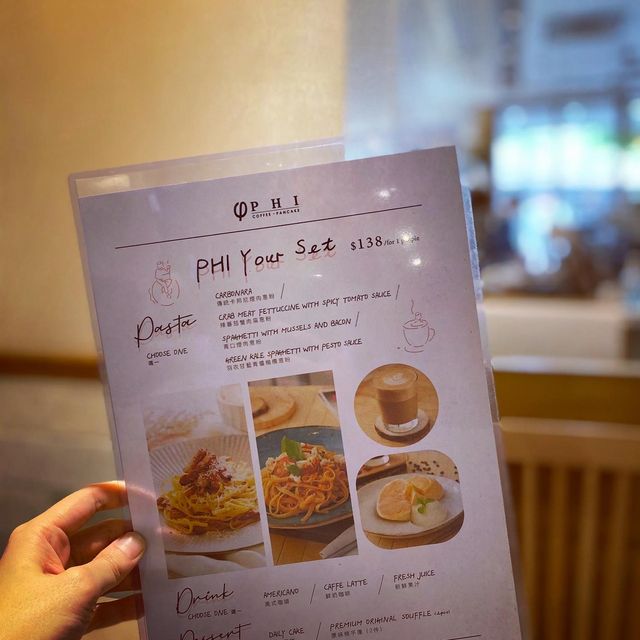 φ PHI
COFFEE • PANCAKE
PHI Your Set $138 /for 1 people
Pasta
CHOOSE ONE
選一
CARBONARA /
傳統卡邦尼煙肉意粉
CRAB MEAT FETTUCCINE WITH SPICY TOMATO SAUCE /
辣蕃茄蟹肉扁意粉
SPAGHETTI WITH MUSSELS AND BACON /
青口煙肉意粉
GREEN KALE SPAGHETTI WITH PESTO SAUCE
羽衣甘藍青醬意粉
Drink
CHOOSE ONE 選一
AMERICANO / CAFFE LATTE / FRESH JUICE
美式咖啡 鮮奶咖啡 新鮮果汁
Dessert
DAILY CAKE / PREMIUM ORIGINAL SOUFFLE (2pcs)